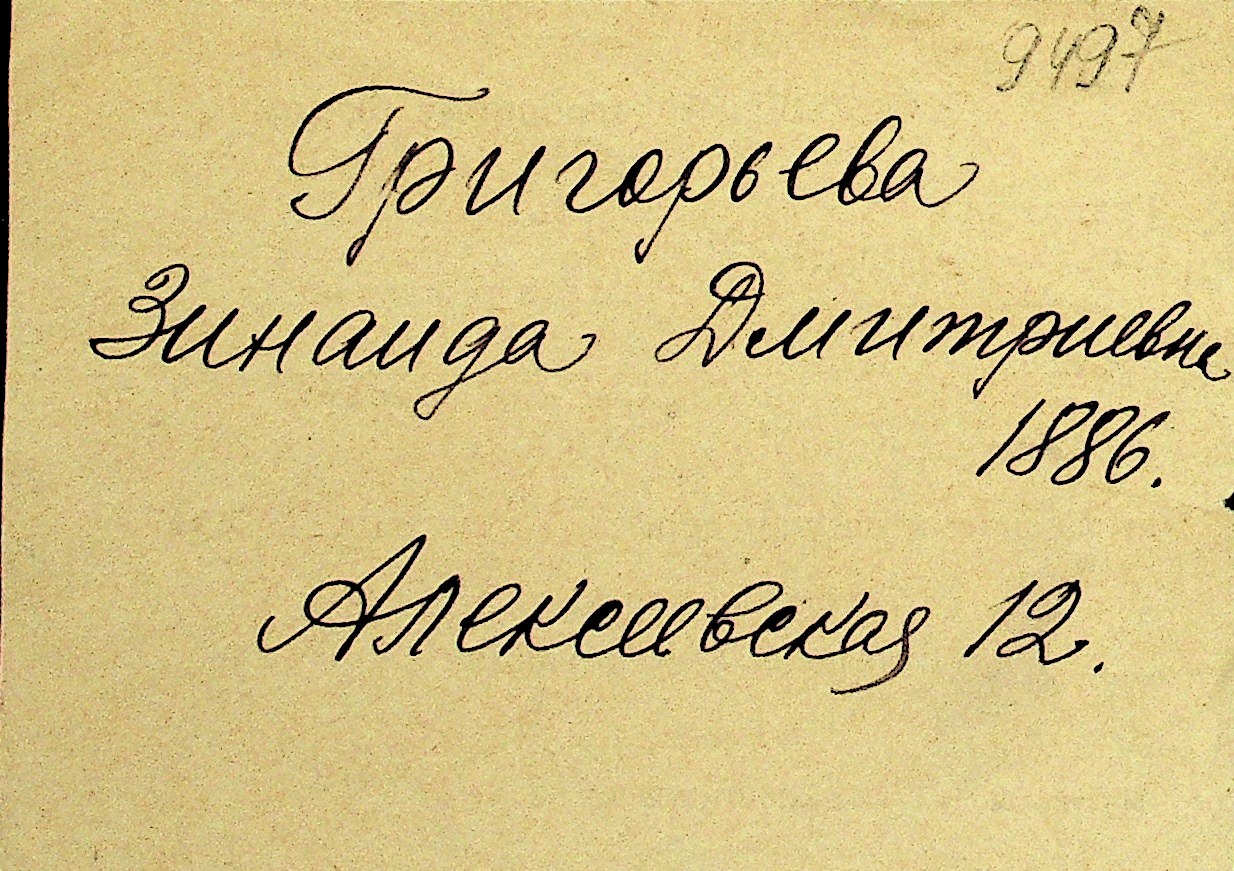 9497
Григорьева
Зинаида Дмитриевна
1886.
Алексеевская 12.